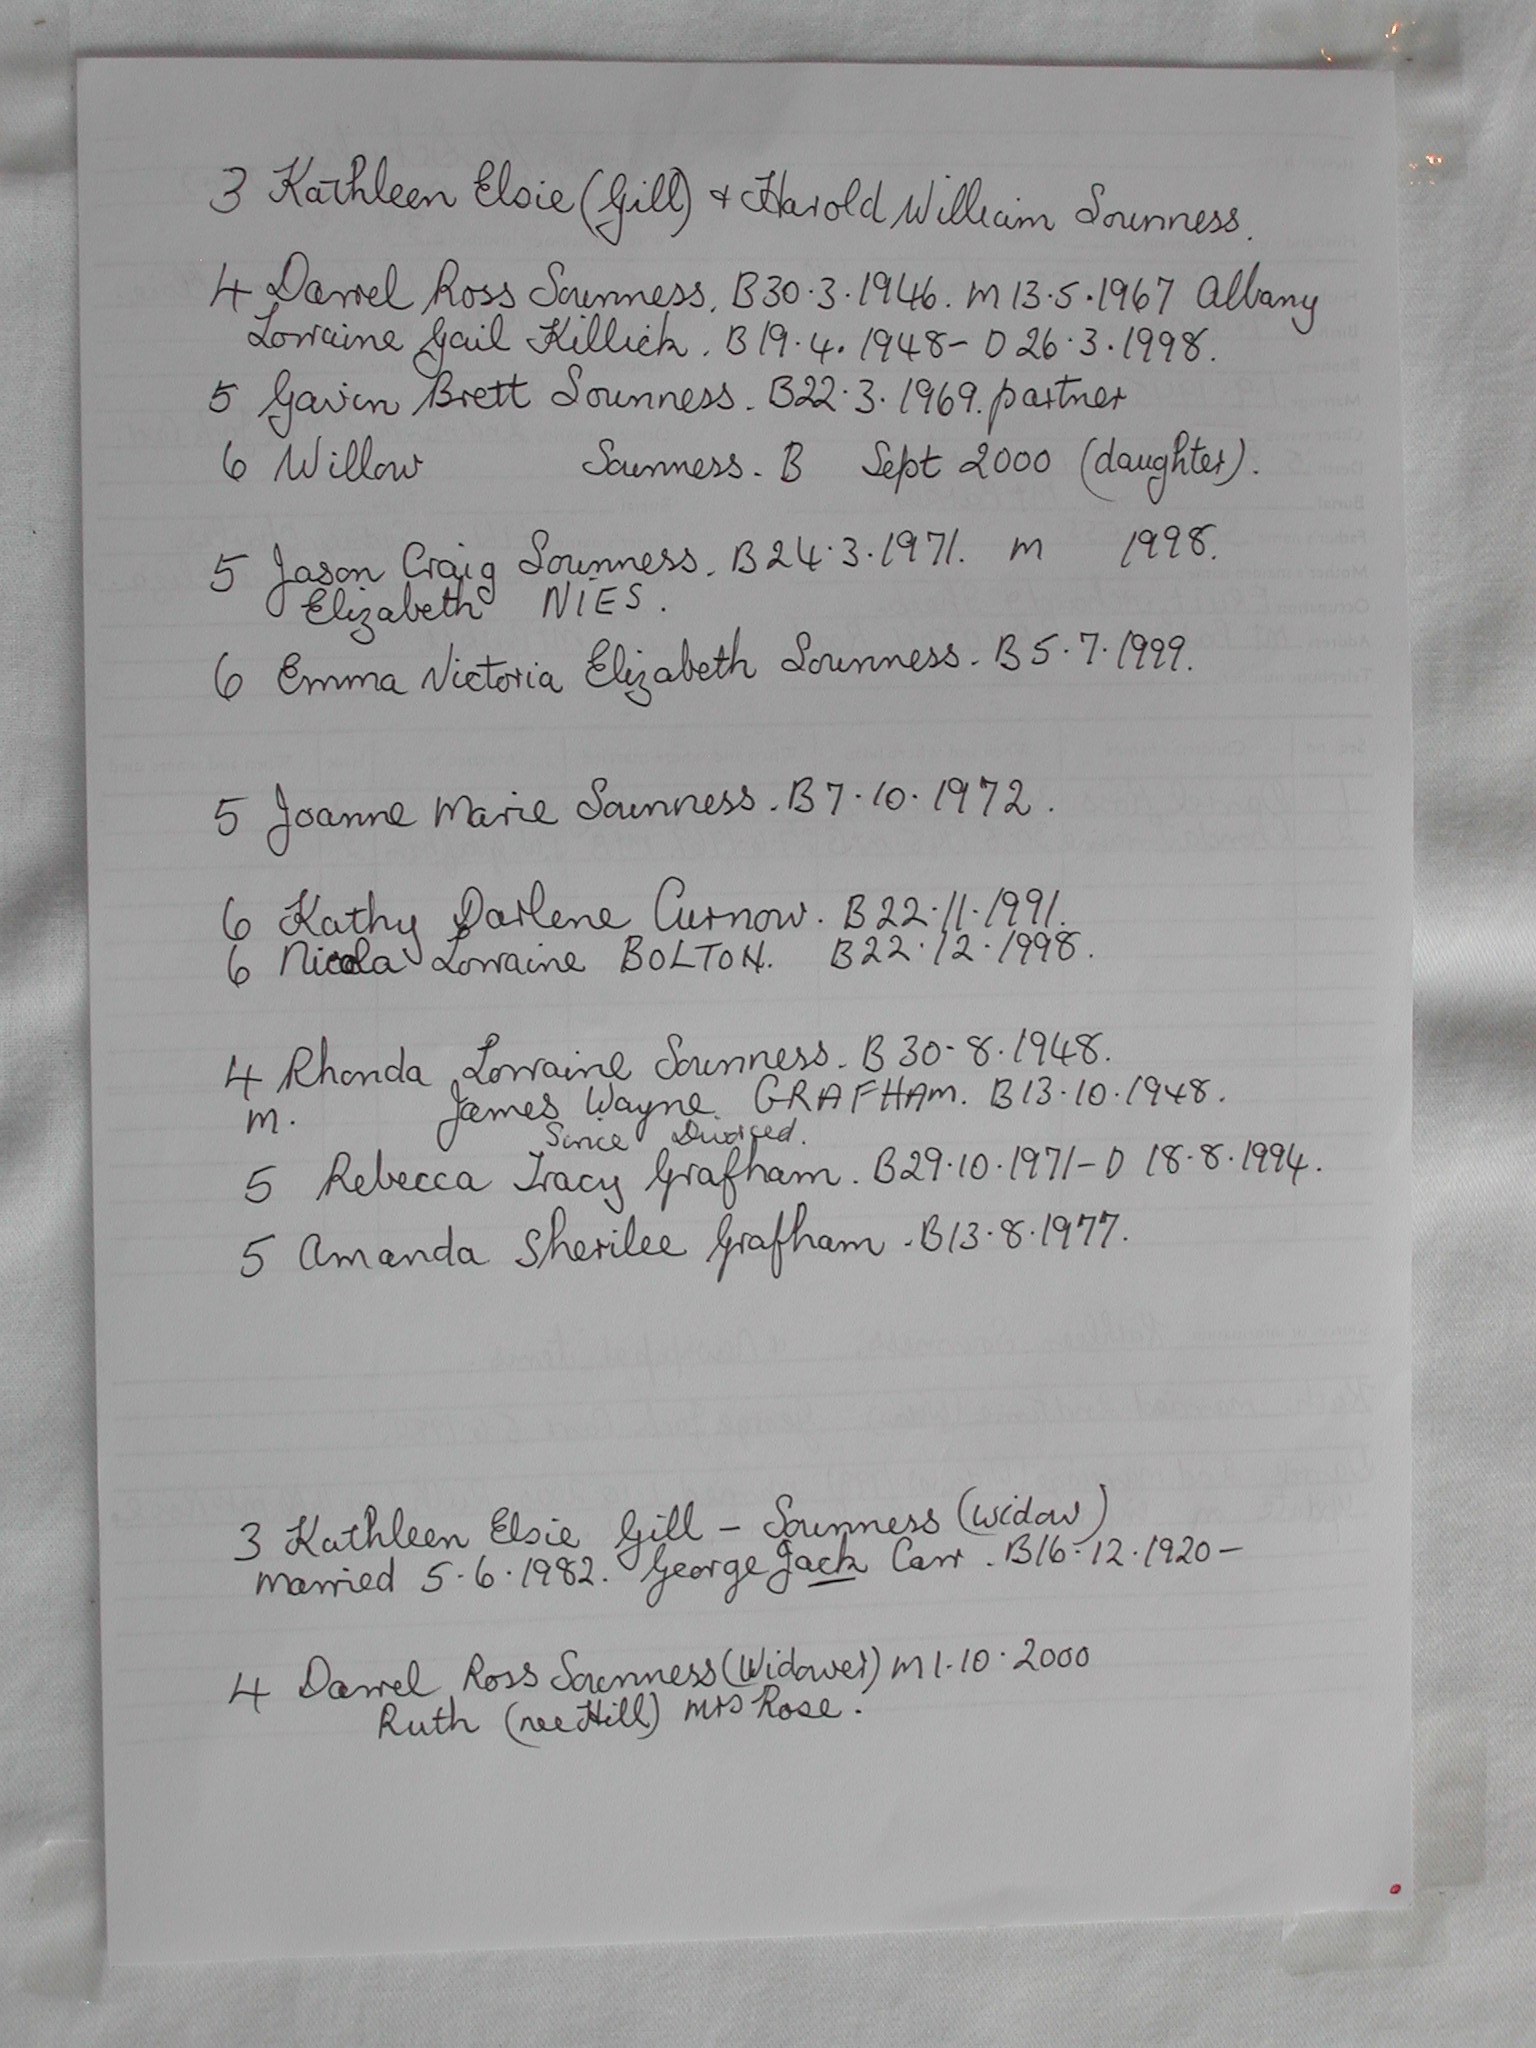 3 Kathleen Elsie (Gill) + Harold William Sounness.
4 Darrel Ross Sounness. B30.3.1946. m 13.5.1967 Albany
Lorraine Gail Killick. B19.4.1948 - D 26.3.1998.
5 Gavin Brett Sounness. B22.3.1969. partner
6 Willow Sounness. B Sept 2000 (daughter).
5 Jason Craig Sounness. B24.3.1971. m 1998.
Elizabeth NIES.
6 Emma Victoria Elizabeth Sounness. B5.7.1999.
5 Joanne Marie Sounness. B7.10.1972.
6 Kathy Darlene Curnow. B22.11.1991.
6 Nicola Lorraine BOLTON. B22.12.1998.
4 Rhonda Lorraine Sounness. B 30-8.1948.
m. James Wayne GRAFHAM. B13.10.1948.
Since Divorced.
5 Rebecca Tracy Grafham. B29.10.1971 - D 18.8.1994.
5 Amanda Sherilee Grafham. B13.8.1977.
3 Kathleen Elsie Gill - Sounness (widow)
married 5.6.1982. George Jack Carr. B16-12.1920 -
4 Darrel Ross Sounness (Widower) m 1.10.2000
Ruth (nee Hill) mrs Rose.